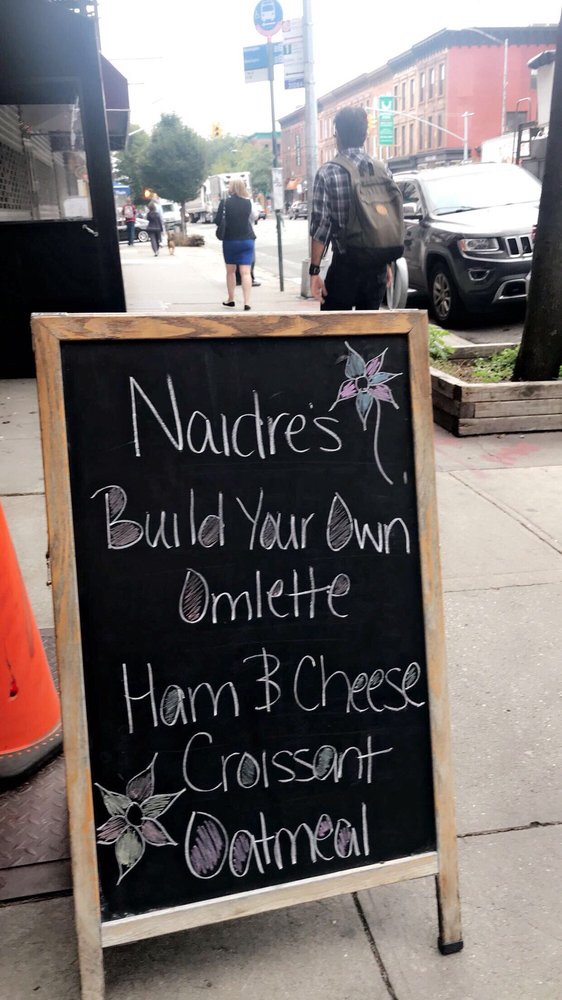 Naidre's
Build Your Own
Omlette
Ham & Cheese
Croissant
Oatmeal